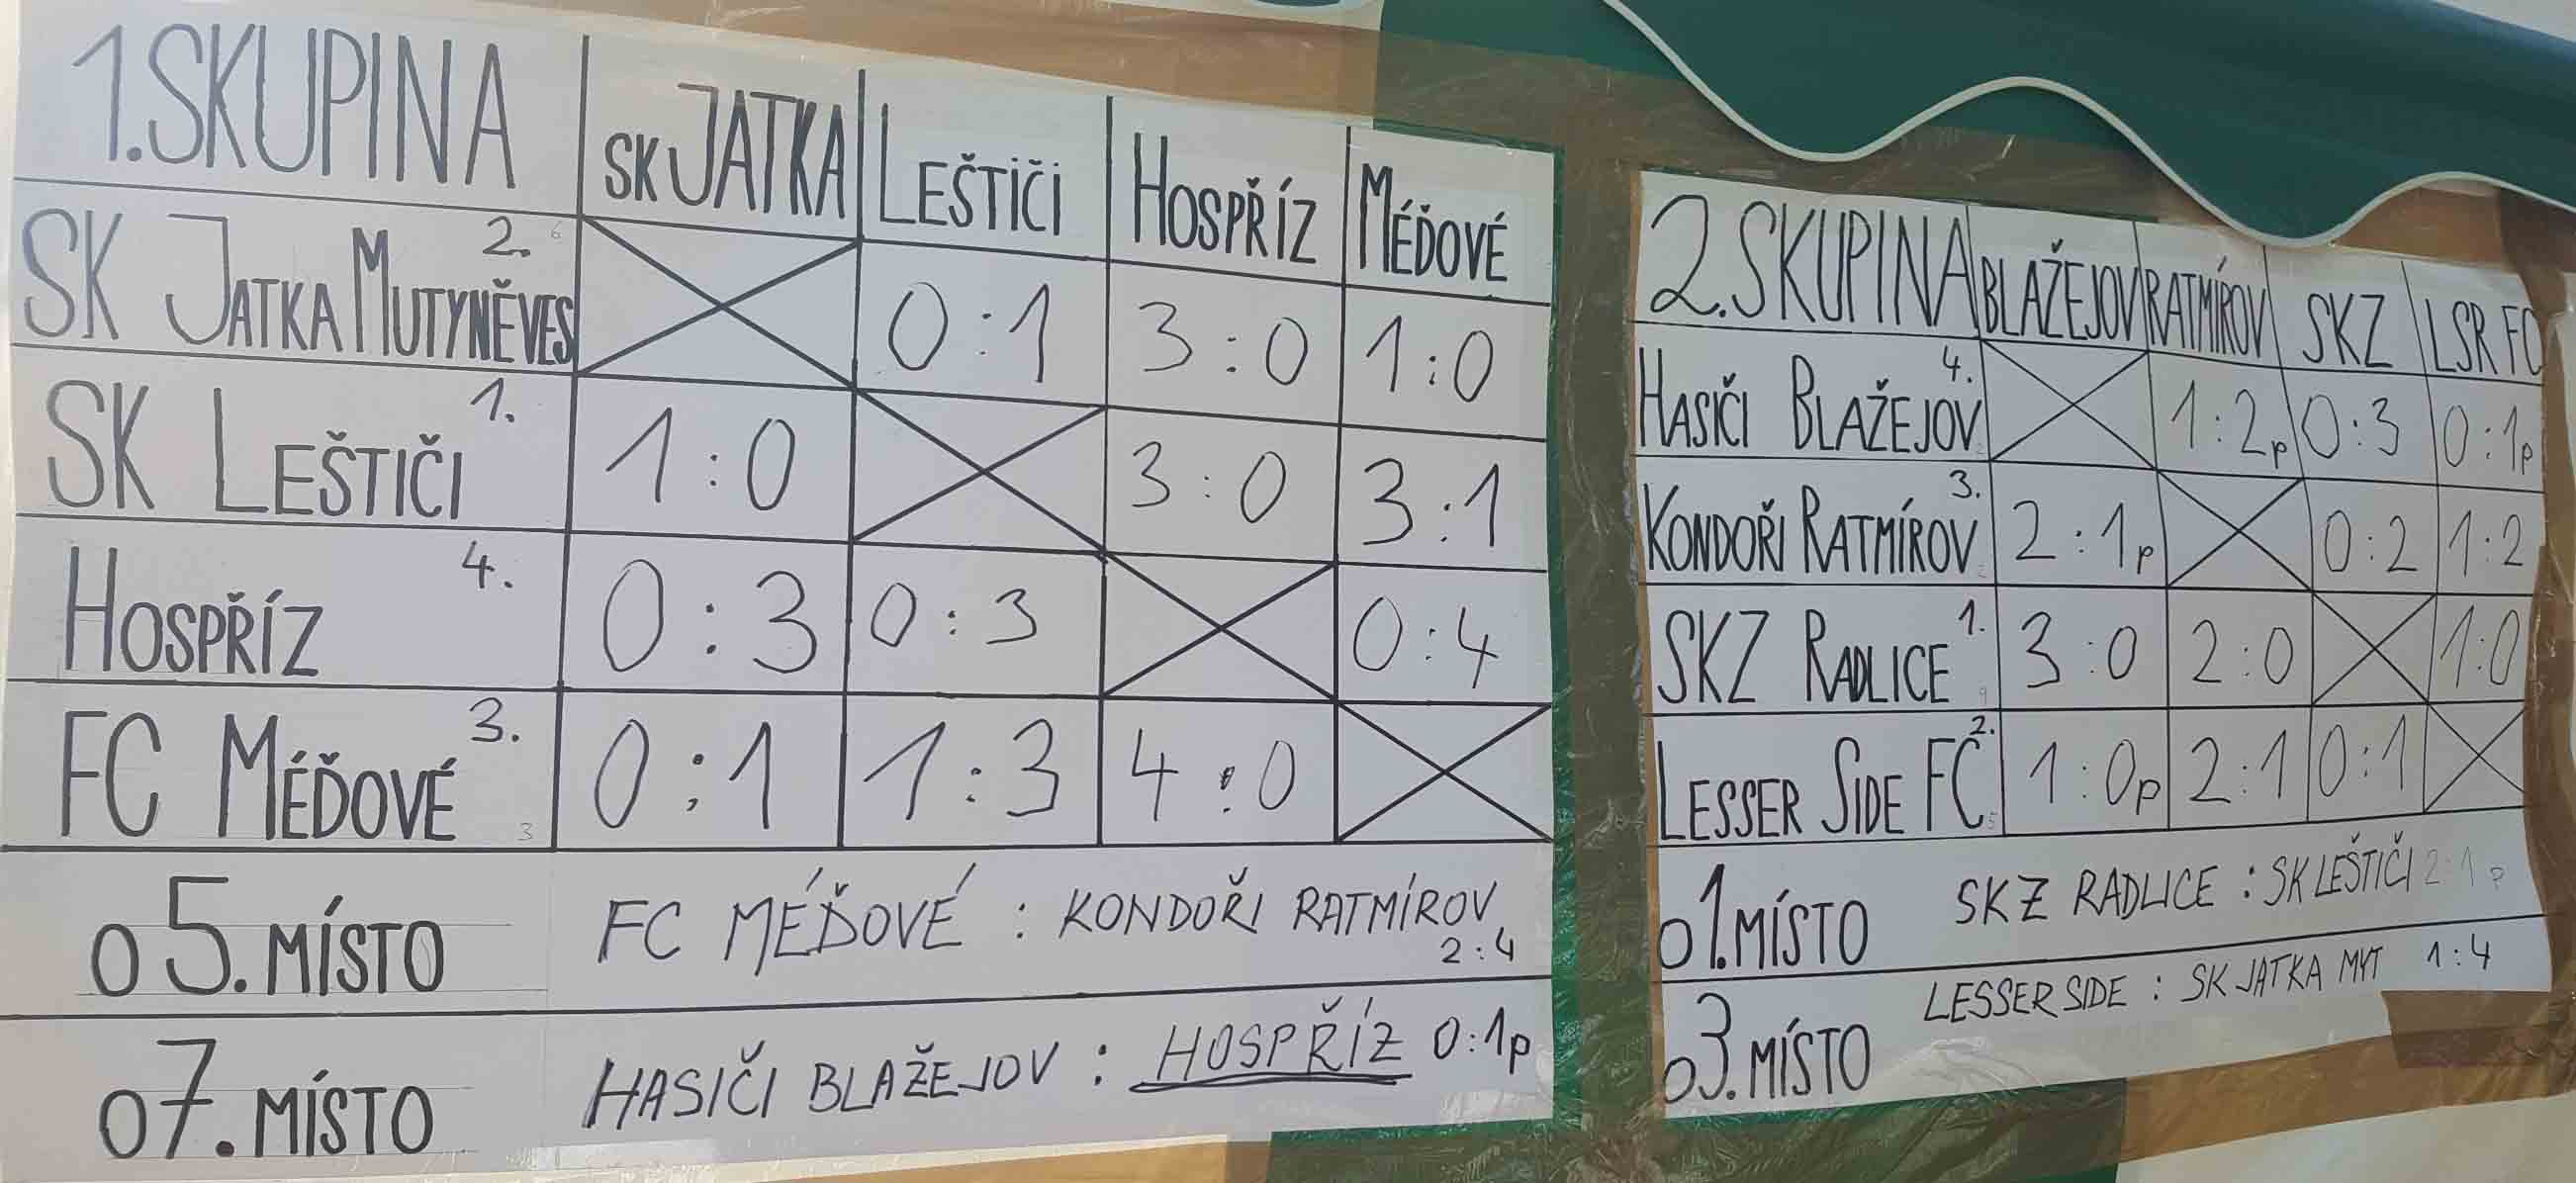 1.SKUPINA SK JATKA LEŠTIČI HOSPŘÍZ MÉĎOVÉ
SK JATKA MUTYNĚVES 2. 6 0:1 3:0 1:0
SK LEŠTIČI 1. 1:0 3:0 3:1
HOSPŘÍZ 4. 0:3 0:3 0:4
FC MÉĎOVÉ 3. 3 0:1 1:3 4:0
O 5. MÍSTO FC MÉĎOVÉ : KONDOŘI RATMÍROV 2:4
O 7. MÍSTO HASIČI BLAŽEJOV : HOSPŘÍZ 0:1p
2.SKUPINA BLAŽEJOV RATMÍROV SKZ LSR FC
HASIČI BLAŽEJOV 4. 1:2p 0:3 0:1p
KONDOŘI RATMÍROV 3. 2:1p 0:2 1:2
SKZ RADLICE 1. 9 3:0 2:0 1:0
LESSER SIDE FC 2. 5 1:0p 2:1 0:1
O 1. MÍSTO SKZ RADLICE : SK LEŠTIČI 2:1 p
O 3. MÍSTO LESSER SIDE : SK JATKA MYT 1:4